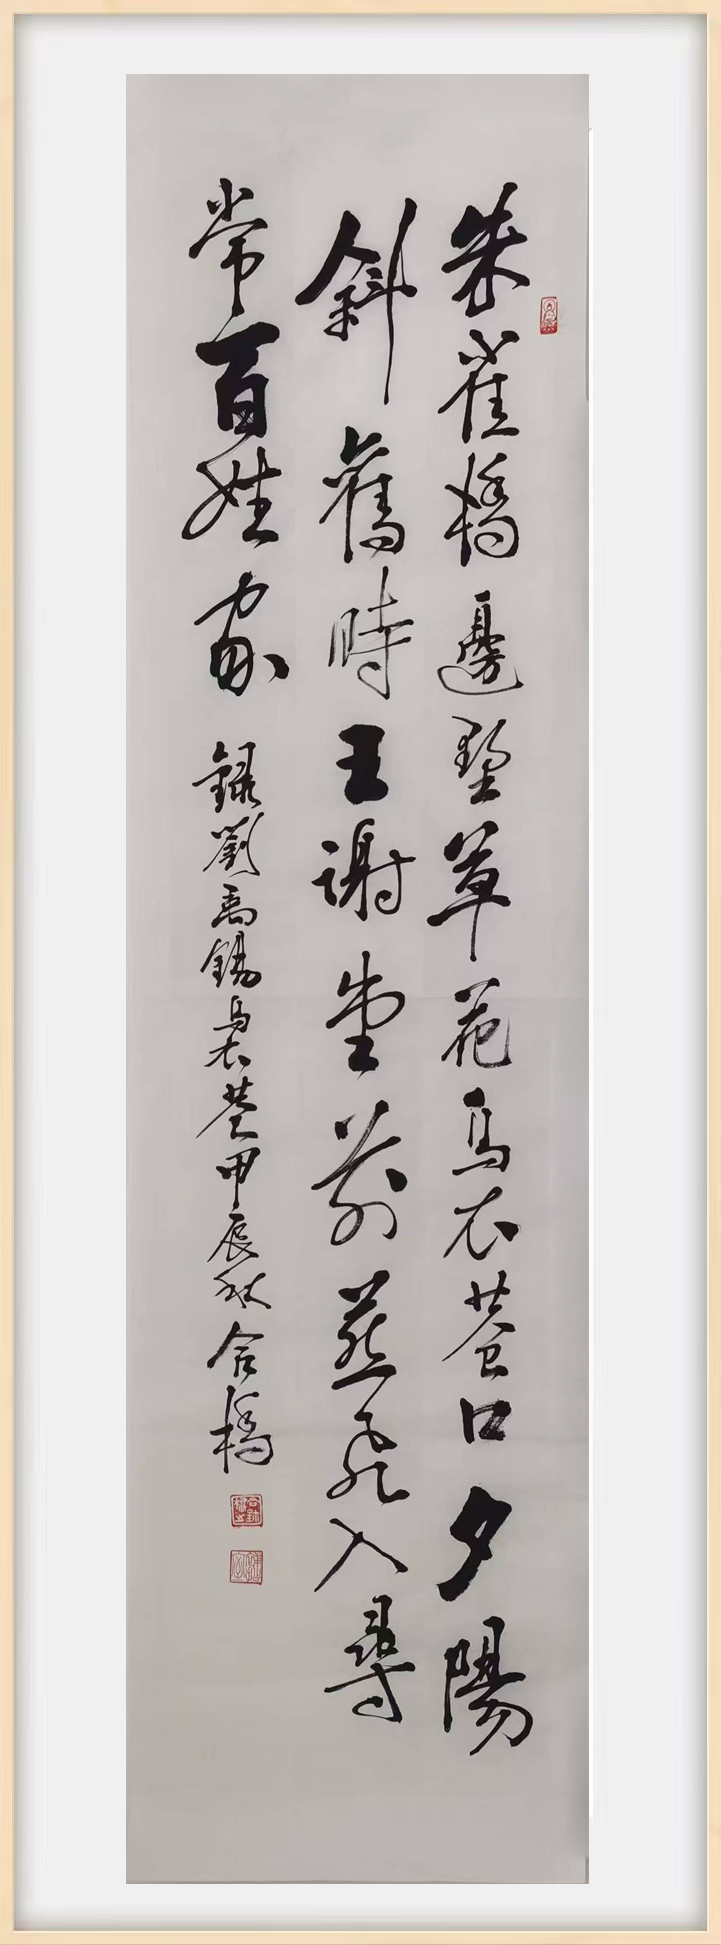 朱雀橋邊埜草花烏衣巷口夕陽
斜舊時王謝堂前燕飛入尋
常百姓家
錄劉禹錫烏衣巷甲辰秋合橋